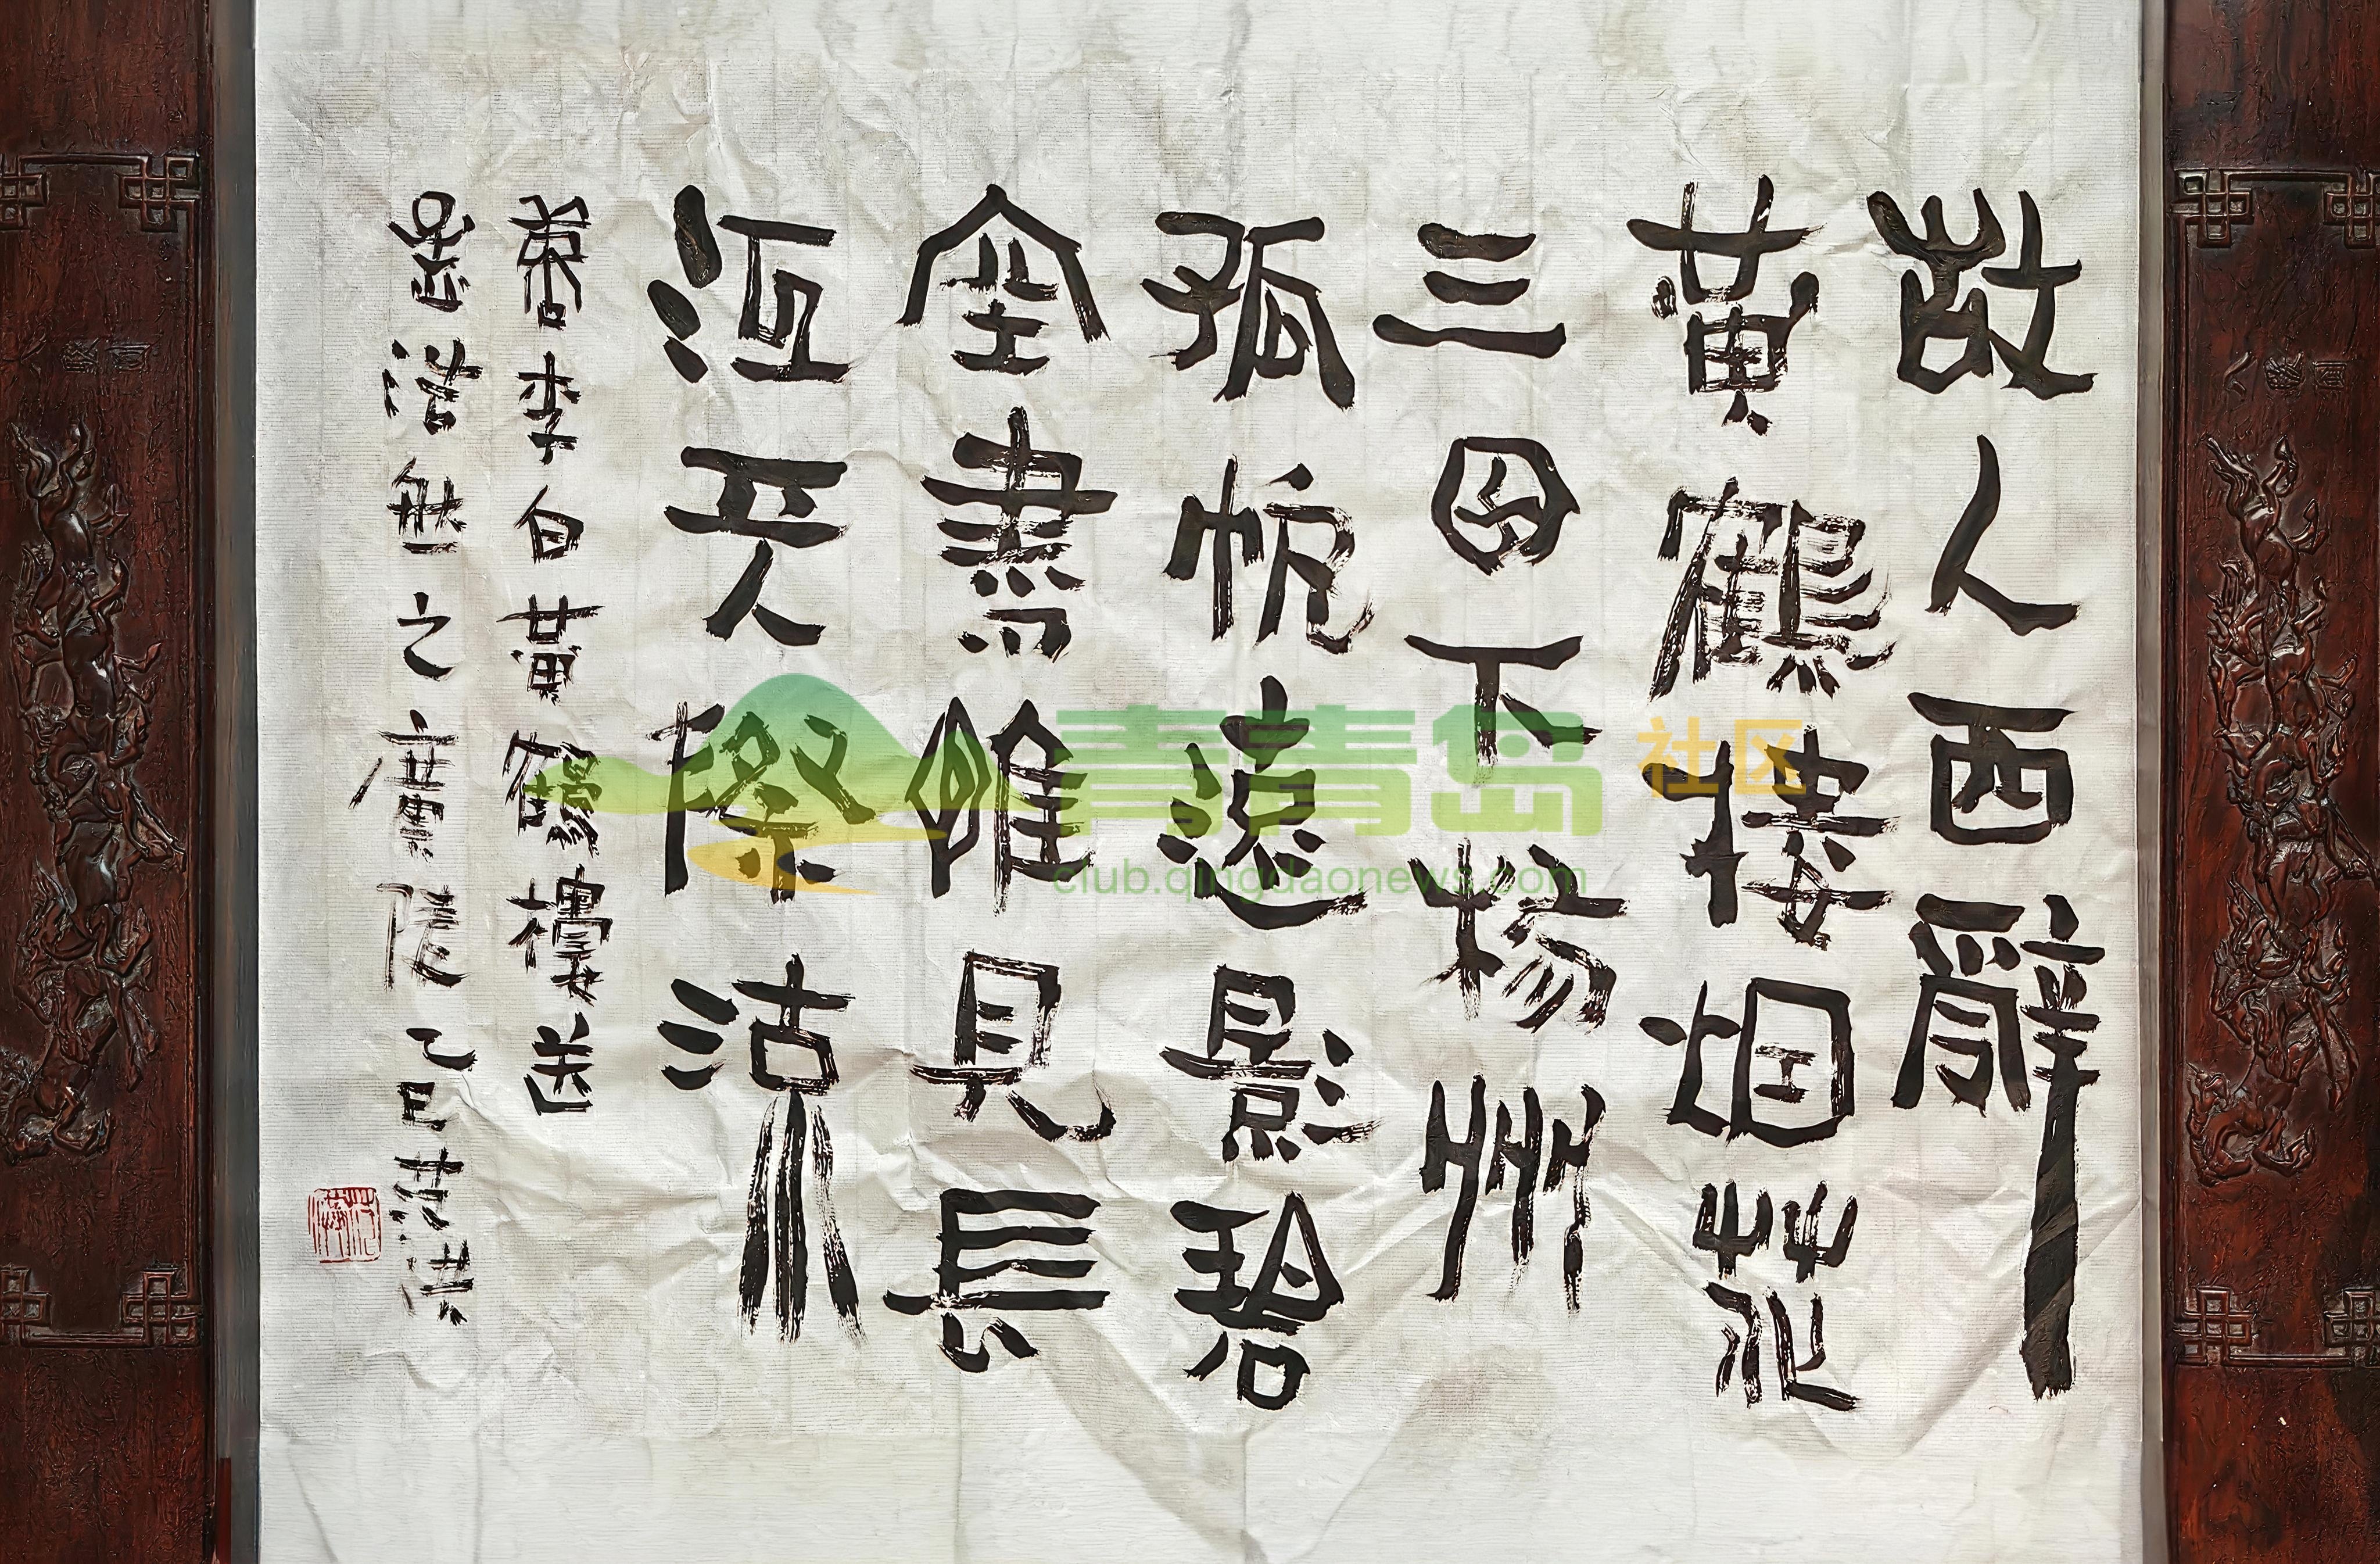 故人西辭
黄鶴接烟花
三月下楊州
孤帆遠影碧
空盡惟見長
江天際流
書李白黄鶴樓送
孟浩然之廣陵乙巳范洪
青青岛社区
club.qingdaonews.com